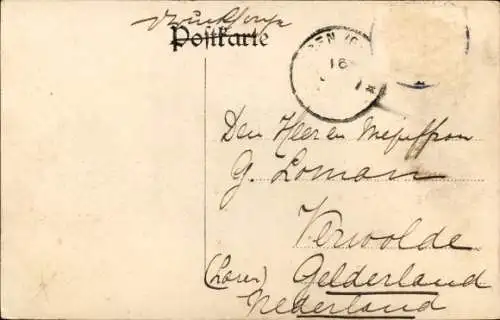 Drucksache
Postkarte
16
Den Heeren
G. Loman
Verwolde
(Laren) Gelderland
Nederland